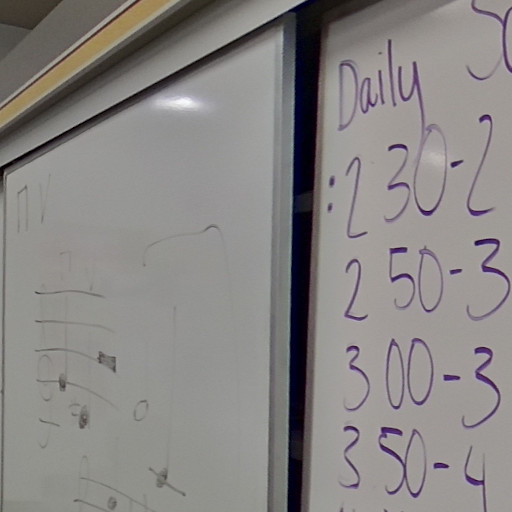 Daily
:2 30-2
2 50-3
3 00-3
3 50-4